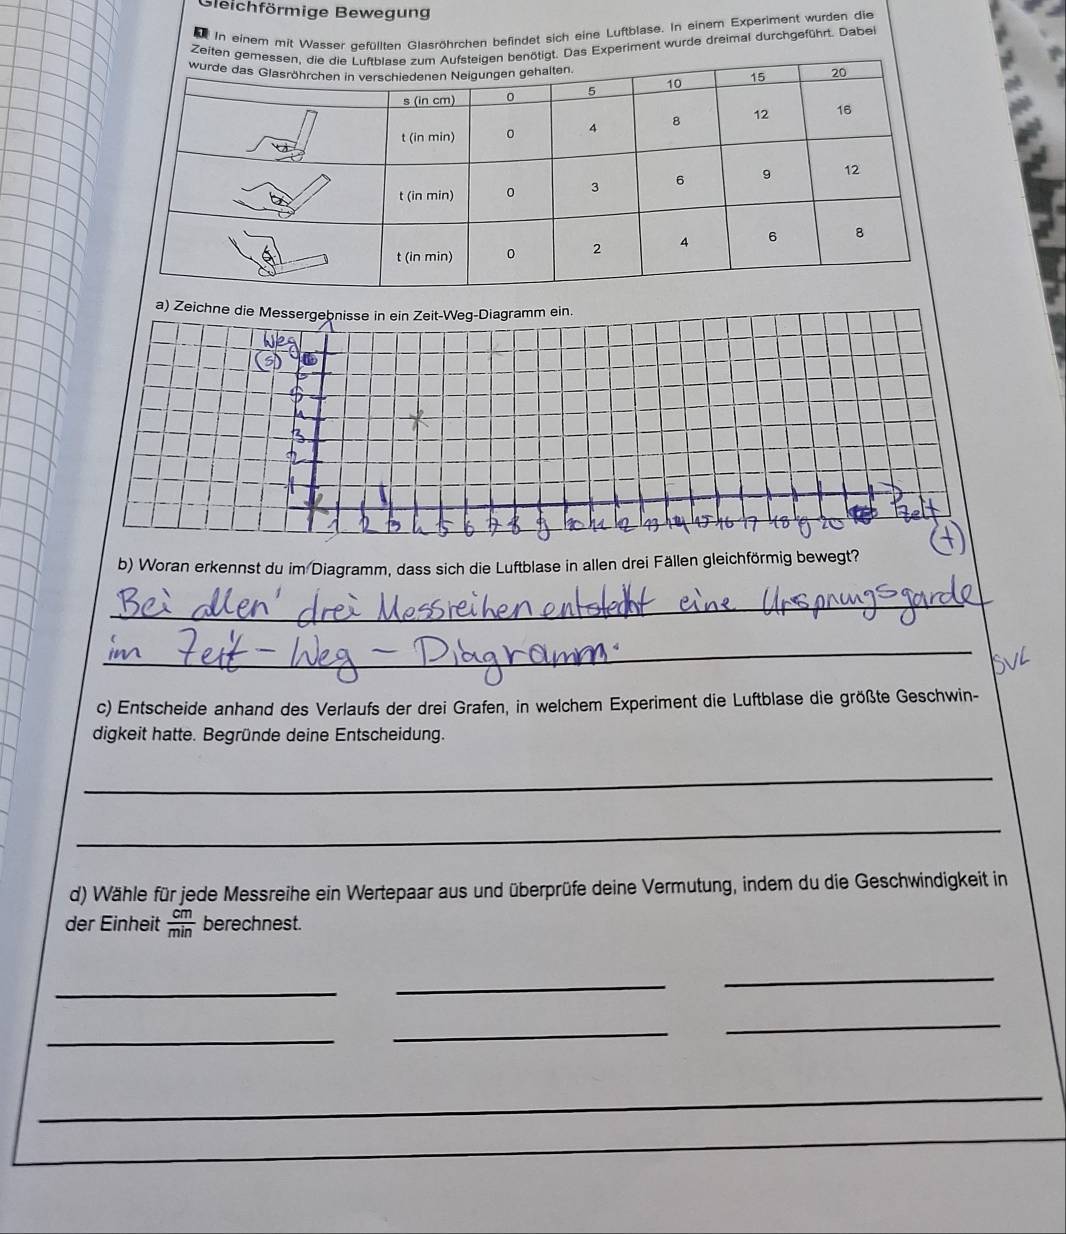 Gleichförmige Bewegung
1 In einem mit Wasser gefüllten Glasröhrchen befindet sich eine Luftblase. In einem Experiment wurden die
Zeiten gemessen, die die Luftblase zum Aufsteigen benötigt. Das Experiment wurde dreimal durchgeführt. Dabei
wurde das Glasröhrchen in verschiedenen Neigungen gehalten.
s (in cm) 0 5 10 15 20
t (in min) 0 4 8 12 16
t (in min) 0 3 6 9 12
t (in min) 0 2 4 6 8
a) Zeichne die Messergebnisse in ein Zeit-Weg-Diagramm ein.
Weg
(s)
6
5
4
3
2
1
1 2 3 4 5 6 7 8 9 10 11 12 13 14 15 16 17 18 9 20 Zeit
(t)
b) Woran erkennst du im Diagramm, dass sich die Luftblase in allen drei Fällen gleichförmig bewegt?
Bei allen drei Messreihen entsteht eine Ursprungsgarde
im Zeit-Weg-Diagramm.
SVL
c) Entscheide anhand des Verlaufs der drei Grafen, in welchem Experiment die Luftblase die größte Geschwin-
digkeit hatte. Begründe deine Entscheidung.
d) Wähle für jede Messreihe ein Wertepaar aus und überprüfe deine Vermutung, indem du die Geschwindigkeit in
der Einheit cm/min berechnest.